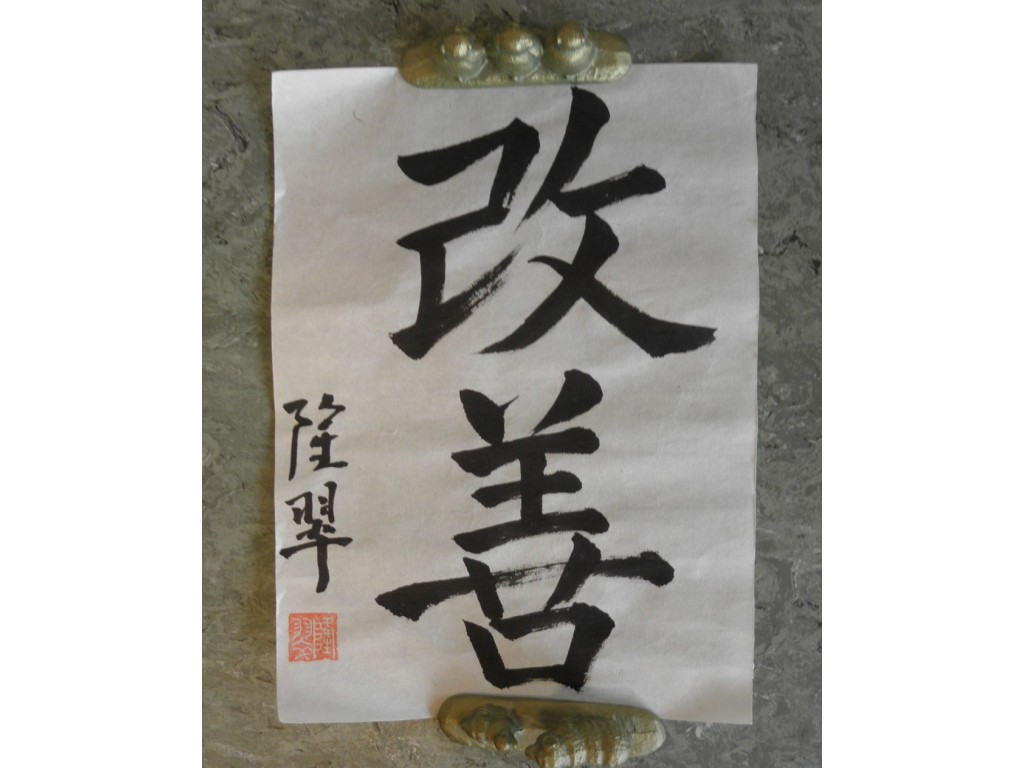 改善
隆翠